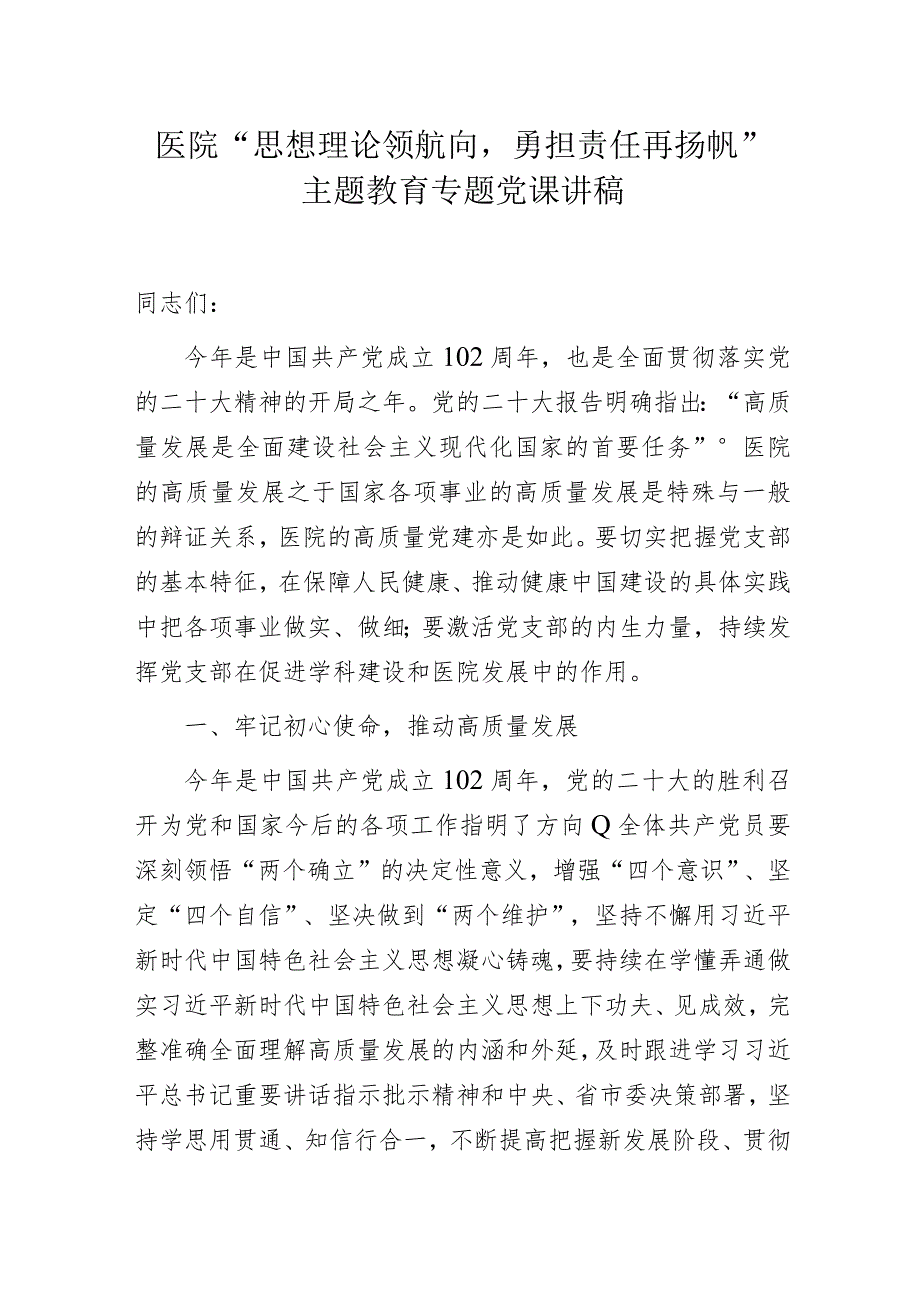 医院“思想理论领航向，勇担责任再扬帆”
主题教育专题党课讲稿
同志们：
今年是中国共产党成立102周年，也是全面贯彻落实党
的二十大精神的开局之年。党的二十大报告明确指出：“高质
量发展是全面建设社会主义现代化国家的首要任务”°医院
的高质量发展之于国家各项事业的高质量发展是特殊与一般
的辩证关系，医院的高质量党建亦是如此。要切实把握党支部
的基本特征，在保障人民健康、推动健康中国建设的具体实践
中把各项事业做实、做细；要激活党支部的内生力量，持续发
挥党支部在促进学科建设和医院发展中的作用。
一、牢记初心使命，推动高质量发展
今年是中国共产党成立102周年，党的二十大的胜利召
开为党和国家今后的各项工作指明了方向Q全体共产党员要
深刻领悟“两个确立”的决定性意义，增强“四个意识”、坚
定“四个自信”、坚决做到“两个维护”，坚持不懈用习近平
新时代中国特色社会主义思想凝心铸魂，要持续在学懂弄通做
实习近平新时代中国特色社会主义思想上下功夫、见成效，完
整准确全面理解高质量发展的内涵和外延，及时跟进学习习近
平总书记重要讲话指示批示精神和中央、省市委决策部署，坚
持学思用贯通、知信行合一，不断提高把握新发展阶段、贯彻